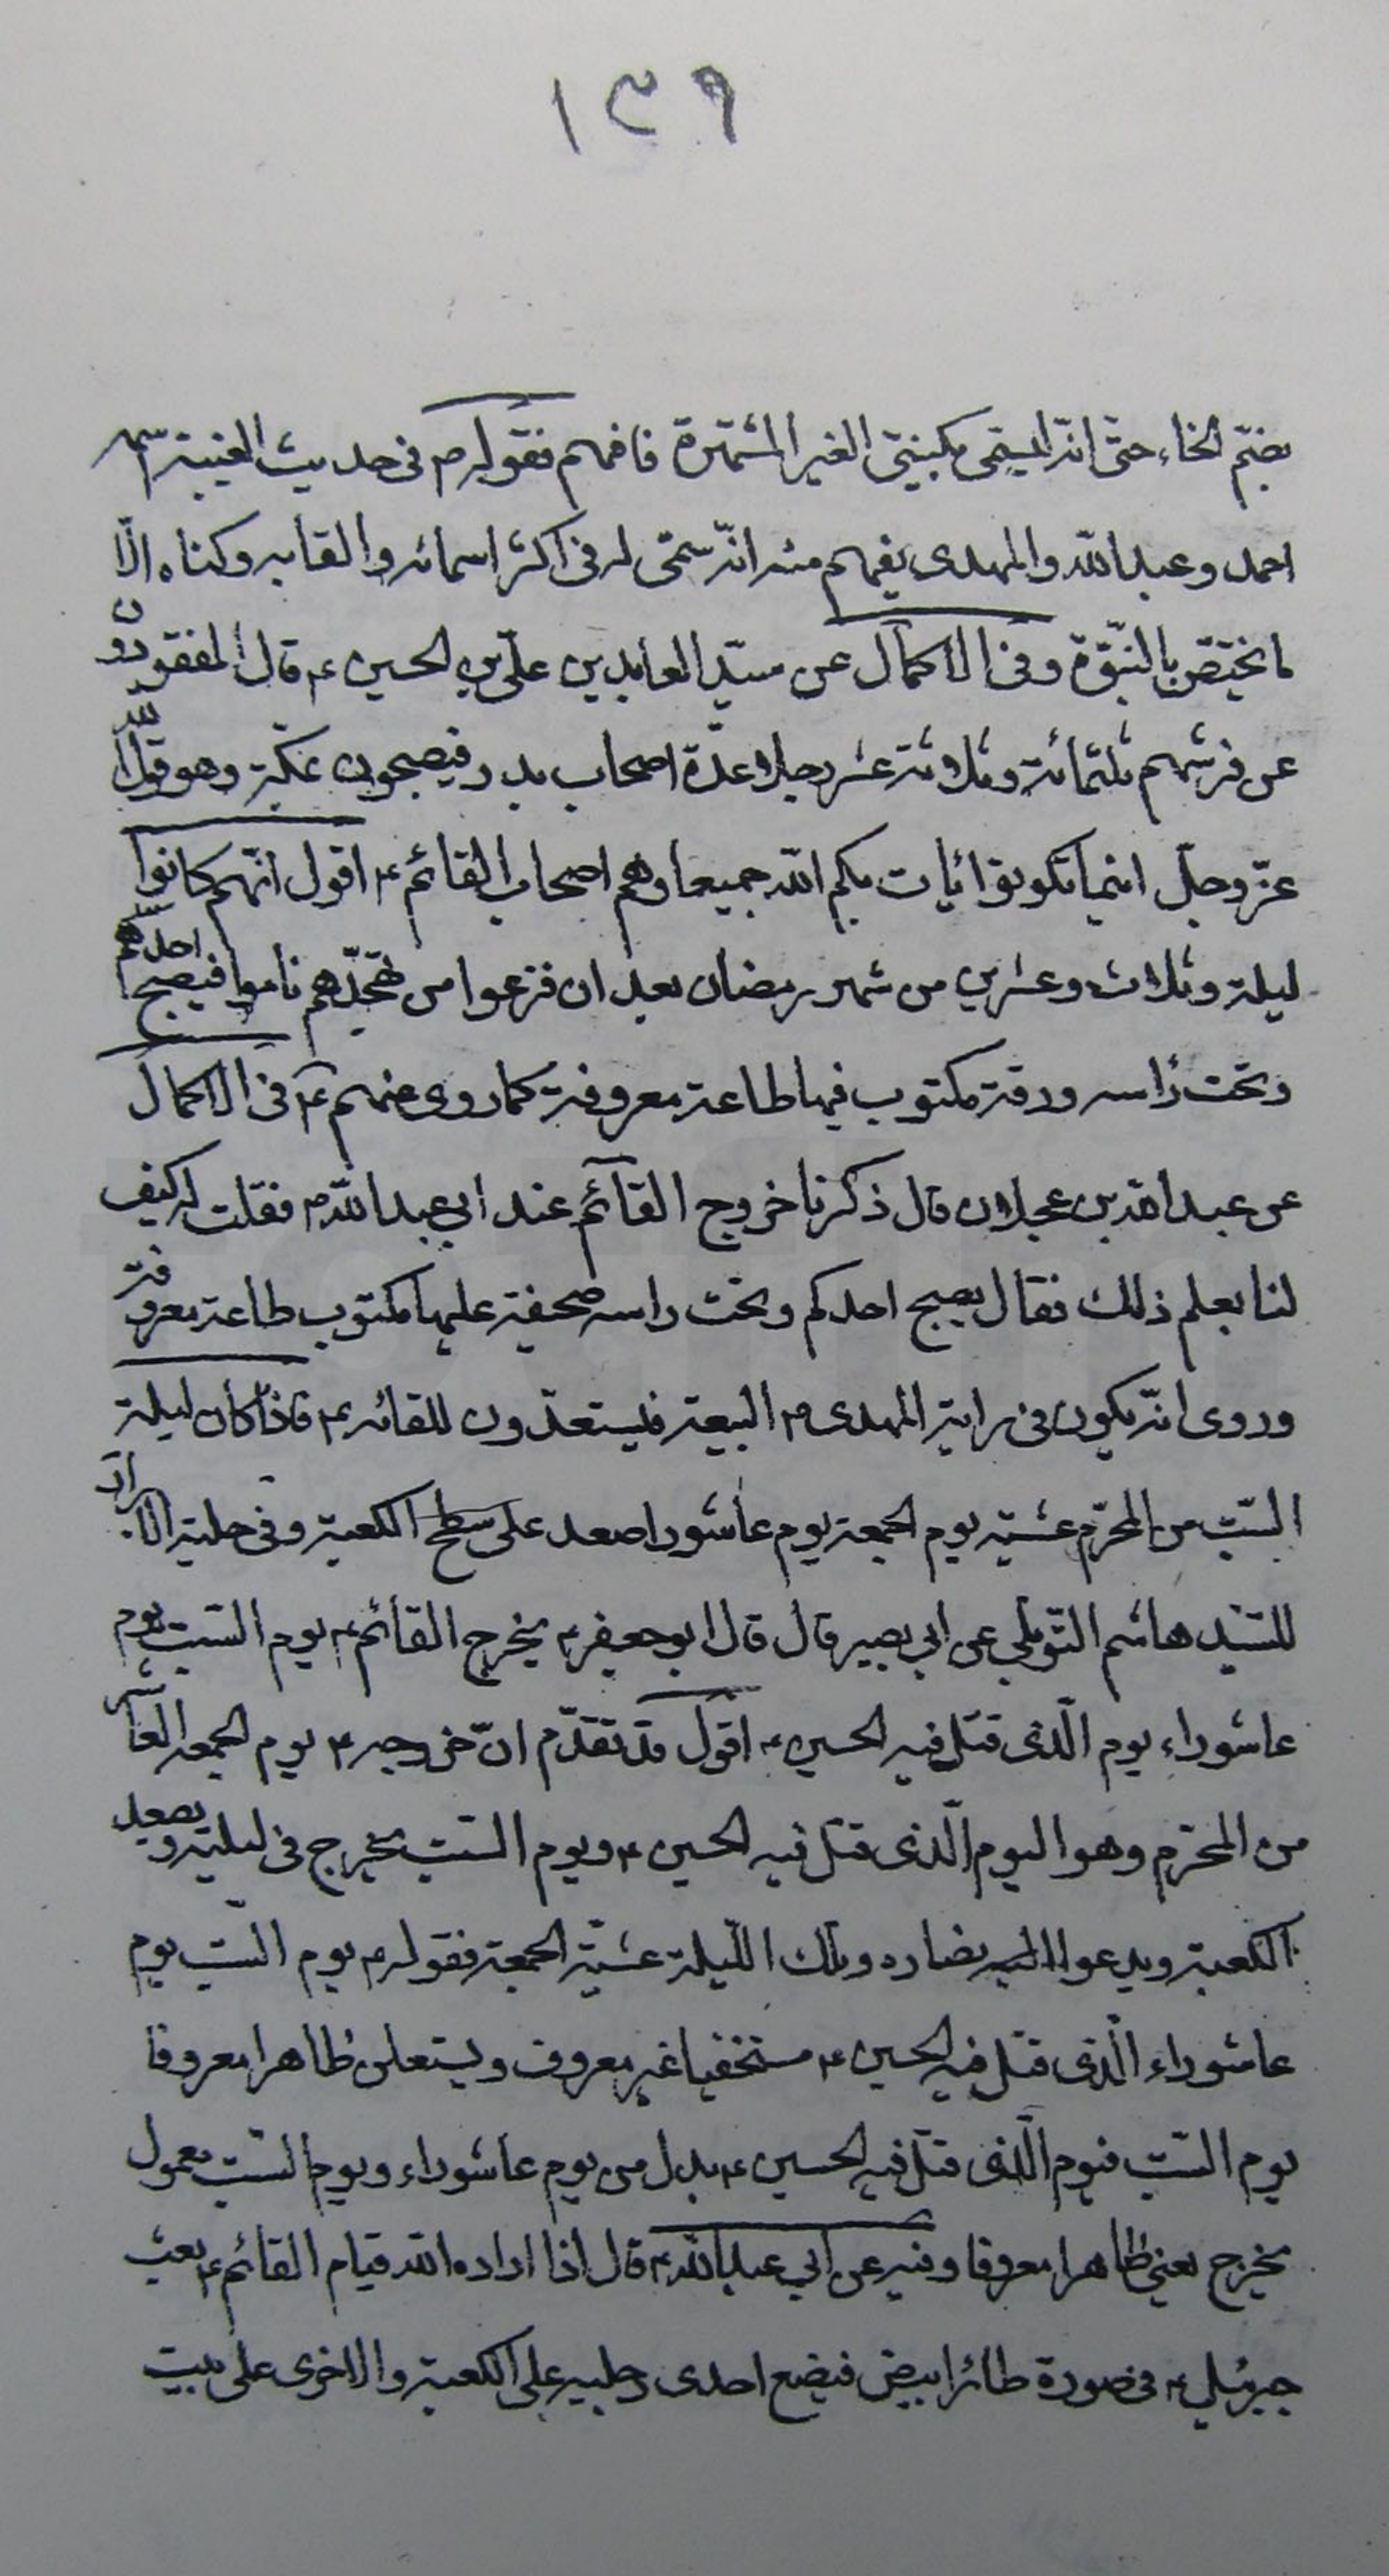 ١٣٩
بضمّ الخاء حتى انه ليسمى بكنيتى الغير المشتهرة فافهم فقوله ص فى حديث الغيبة اسمه
احمد وعبدالله والمهدى يفهم منه انّه سمّى له فى اكثر اسمائه والقابه وكناه الّا
ما يختصّ بالنبّوة وفى الاكمال عن سيّد العابدين علىّ بن الحسين ع قال المفقودون
عن فرشهم ثلثمائة وثلاثة عشر رجلا عدّة اصحاب بدر فيصبحون بمكة وهو قول الله
عزّ وجلّ اينما تكونوا يات بكم الله جميعا وهم اصحاب القائم ع اقول انّهم كانوا
ليلة وثلاث وعشرين من شهر رمضان بعد ان فرغوا من تهجّدهم ناموا فيصبح احدهم
وتحت راسه ورقة مكتوب فيها طاعة معروفة كما روى عنهم ع فى الاكمال
عن عبد الله بن عجلان قال ذكرنا خروج القآئم عند ابى عبدالله ع فقلت له كيف
لنا بعلم ذلك فقال يصبح احدكم وتحت راسه صحفية عليها مكتوب طاعة معروفة
وروى انّه يكون فى راية المهدى ع البيعة فيستعدّون للقائه ع فاذا كان ليلة
السّبت من المحرّم عشية يوم الجمعة يوم عاشورا صعد على سطح الكعبة وفى حلية الابرار
للسّيد هاشم التوبلى عن ابى بصير قال قال ابو جعفر ع يخرج القآئم ع يوم السّبت يوم
عاشوراء يوم الّذى قتل فيه الحسين ع اقول قد تقدّم انّ خروجه ع يوم الجمعة العاشر
من المحرّم وهو اليوم الّذى قتل فيه الحسين ع ويوم السّبت يخرج فى ليلته ويصعد
الكعبة ويدعوا اليه انصاره وتلك اللّيلة عشيّة الجمعة فقوله ع يوم السّبت يوم
عاشوراء الّذى قتل فيه الحسين ع مستخفيا غير معروف ويستعلن ظاهرا معروفا
يوم السّبت فيوم الّذى قتل فيه الحسين ع بدل من يوم عاشوراء ويوم السّبت معمول
يخرج يعنى ظاهرا معروفا وفيه عن ابى عبدالله ع قال اذا اراده الله قيام القائم ع بعث
جبرئيل ع فى صورة طائر ابيض فيضع احدى رجليه على الكعبة والاخرى على بيت